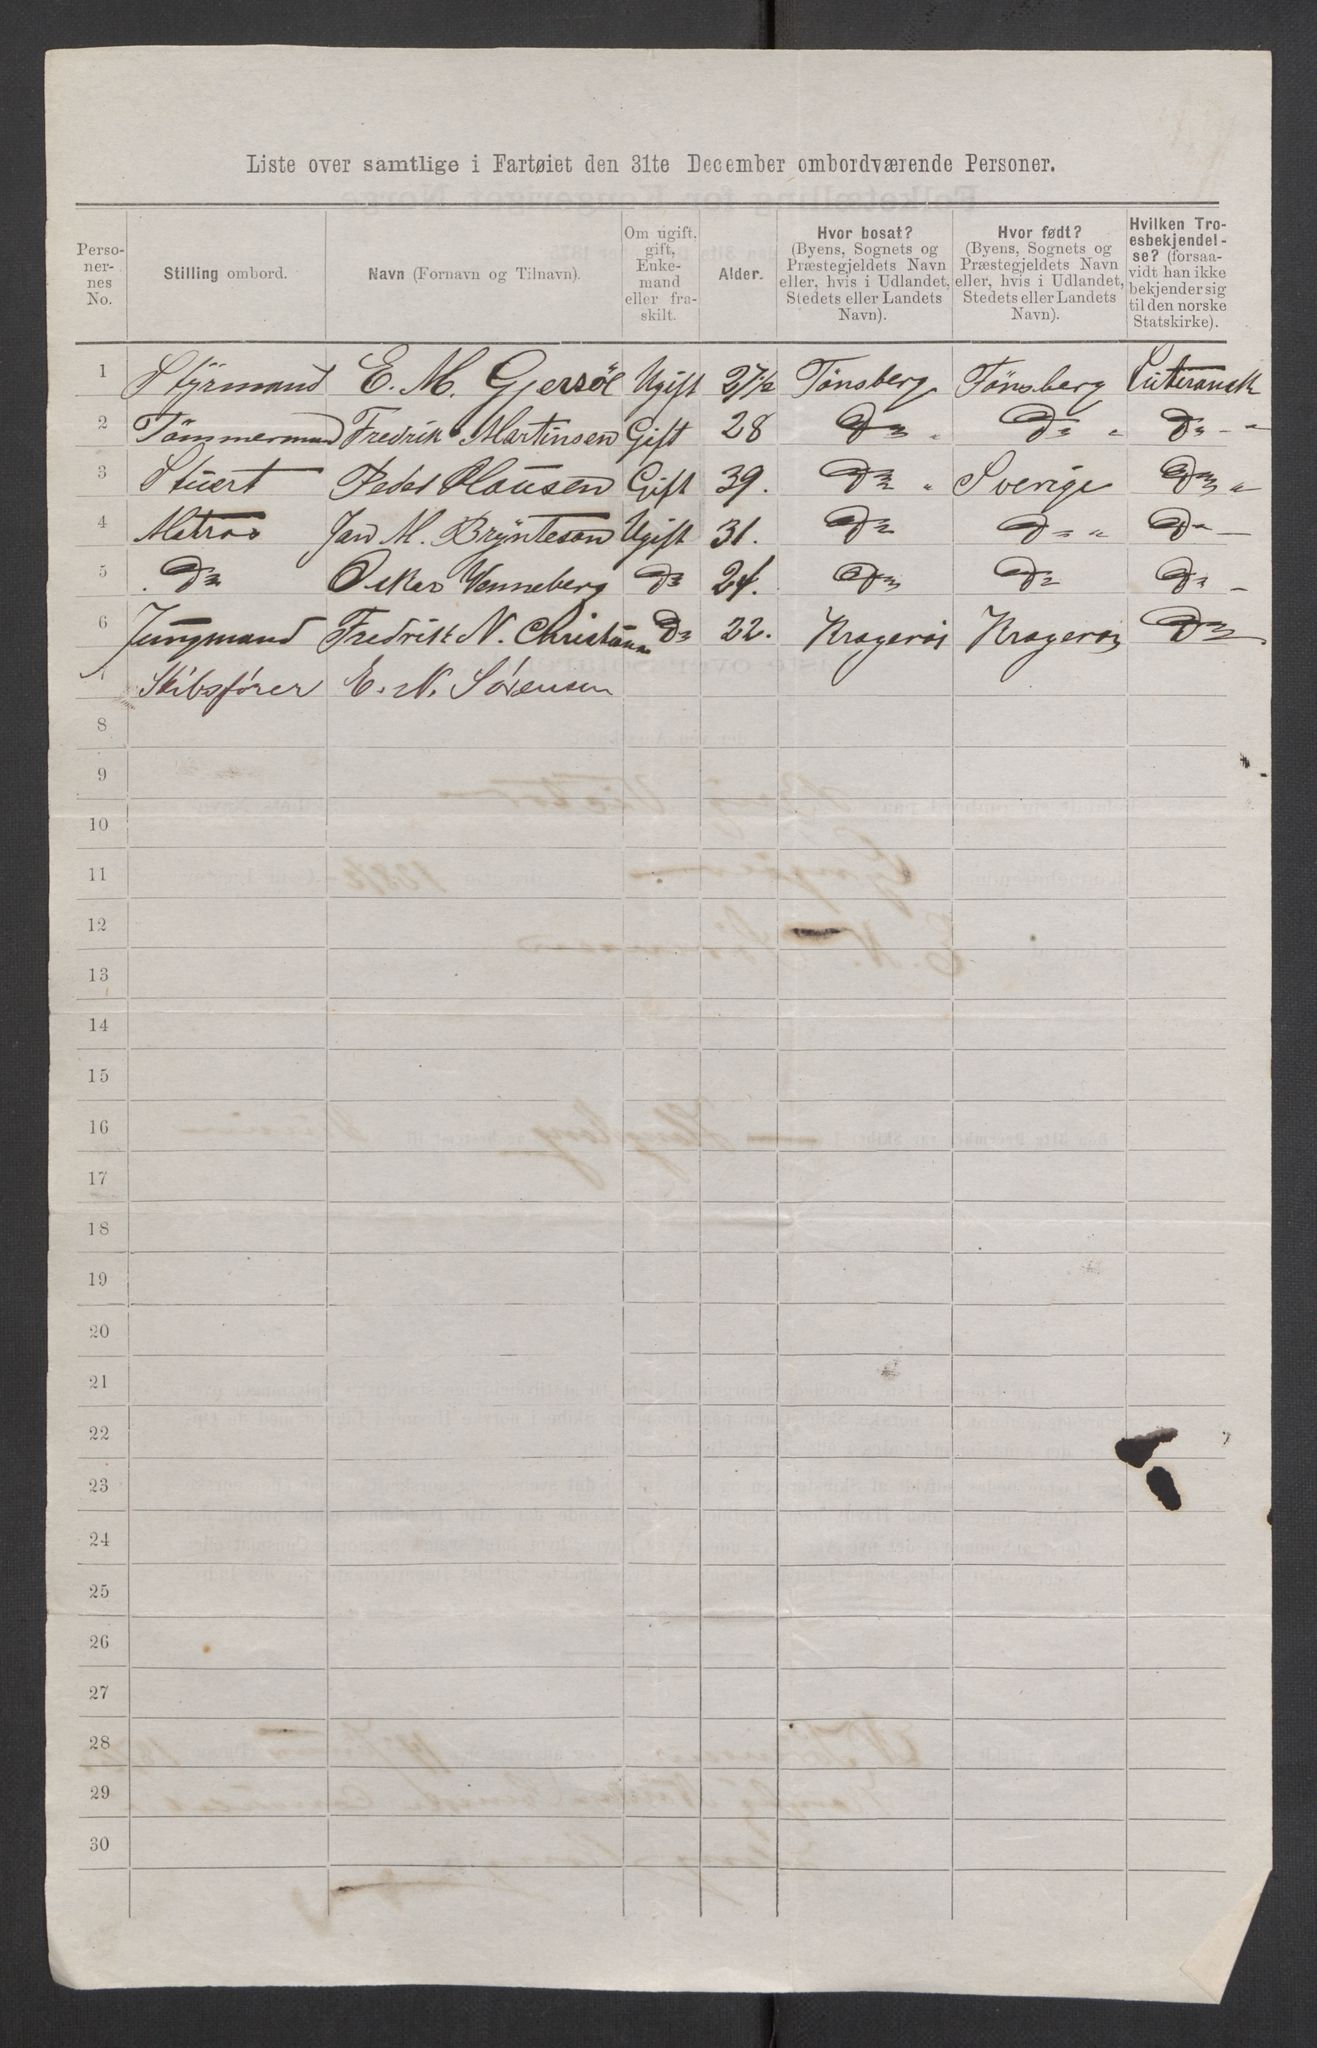 Liste over samtlige i Fartøiet den 31te December ombordværende Personer.
Perso-
nernes
No.
Stilling ombord.
Navn (Fornavn og Tilnavn).
Om ugift,
gift,
Enke-
mand
eller fra-
skilt.
Alder.
Hvor bosat?
(Byens, Sognets og
Præstegjeldets Navn
eller, hvis i Udlandet,
Stedets eller Landets
Navn).
Hvor født?
(Byens, Sognets og
Præstegjeldets Navn
eller, hvis i Udlandet,
Stedets eller Landets
Navn).
Hvilken Tro-
esbekjendel-
se? (forsaa-
vidt han ikke
bekjender sig
til den norske
Statskirke).
1 Styrmand E. M. Gjersöe Ugift 27½ Tönsberg Tönsberg Luteransk
2 Tömmermand Fredrik Martinsen Gift 28 Do " Do " Do - "
3 Stuert Peder Clausen Gift 39. Do " Sverige Do "
4 Matros Jan M. Brynteson Ugift 31. Do Do " Do -
5 Do Oskar Wenneberg Do 24. Do Do Do -
6 Jungmand Fredrik N. Christians Do 22. Kragerøi Kragerøi Do
7 Skibsfører E. N. Sörensen
8
9
10
11
12
13
14
15
16
17
18
19
20
21
22
23
24
25
26
27
28
29
30